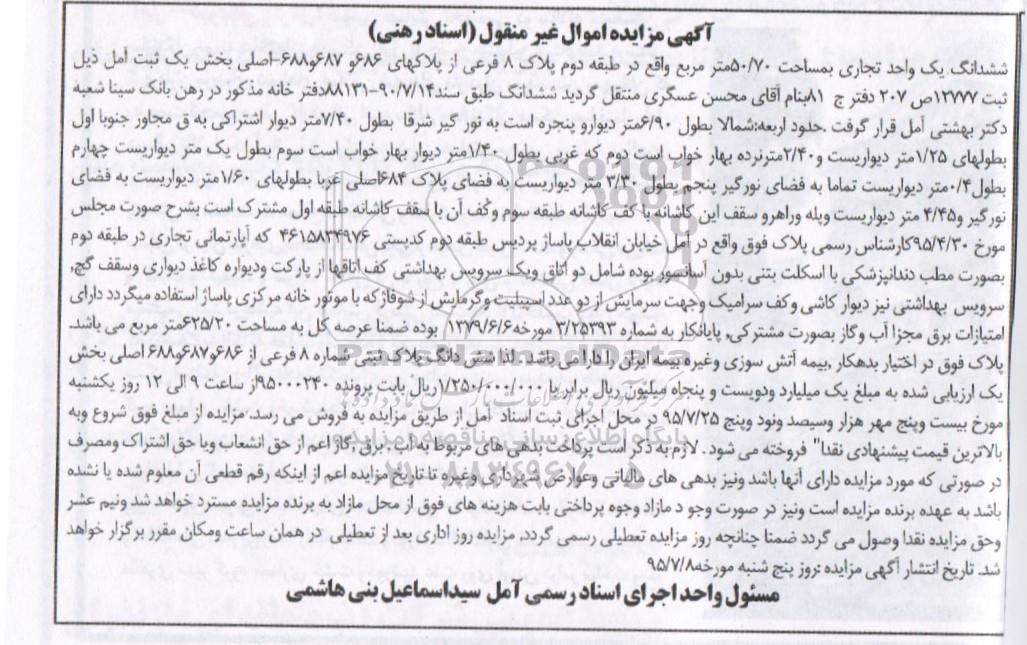 آگهی مزایده اموال غیر منقول (اسناد رهنی)
ششدانگ یک واحد تجاری بمساحت ۵۰/۷۰متر مربع واقع در طبقه دوم پلاک ۸ فرعی از پلاکهای ۶۸۶و ۶۸۷و۶۸۸-اصلی بخش یک ثبت امل ذیل
ثبت ۱۲۷۷۷ص ۲۰۷ دفتر ج ۸۱بنام آقای محسن عسگری منتقل گردید ششدانگ طبق سند۹۰/۷/۱۴-۸۸۱۳۱دفتر خانه مذکور در رهن بانک سینا شعبه
دکتر بهشتی آمل قرار گرفت .حدود اربعه:شمالا بطول ۶/۹۰متر دیوارو پنجره است به نور گیر شرقا بطول ۷/۴۰متر دیوار اشتراکی به ق مجاور جنوبا اول
بطولهای ۱/۲۵متر دیواریست و۲/۴۰مترنرده بهار خواب است دوم که غربی بطول ۱/۴۰متر دیوار بهار خواب است سوم بطول یک متر دیواریست چهارم
بطول۰/۴متر دیواریست تماما به فضای نورگیر پنجم بطول ۲/۴۰ متر دیواریست به فضای پلاک ۶۸۴اصلی غربا بطولهای ۱/۶۰متر دیواریست به فضای
نورگیر و۴/۴۵ متر دیواریست وپله وراهرو سقف این کاشانه با کف کاشانه طبقه سوم وکف آن با سقف کاشانه طبقه اول مشترک است بشرح صورت مجلس
مورخ ۹۵/۴/۳۰کارشناس رسمی پلاک فوق واقع در آمل خیابان انقلاب پاساژ پردیس طبقه دوم کدپستی ۴۶۱۵۸۳۴۹۷۶ که آپارتمانی تجاری در طبقه دوم
بصورت مطب دندانپزشکی با اسکلت بتنی بدون آسانسور بوده شامل دو اتاق ویک سرویس بهداشتی کف اتاقها از پارکت ودیواره کاغذ دیواری وسقف گچ,
سرویس بهداشتی نیز دیوار کاشی وکف سرامیک وجهت سرمایش از دو عدد اسپیلیت وگرمایش از شوفاژکه با موتور خانه مرکزی پاساژ استفاده میگردد دارای
امتیازات برق مجزا آب وگاز بصورت مشترکی, پایانکار به شماره ۳/۲۵۳۹۳ مورخه۱۳۷۹/۶/۶ بوده ضمنا عرصه کل به مساحت ۶۲۵/۲۰متر مربع می باشد.
پلاک فوق در اختیار بدهکار ,بیمه آتش سوزی وغیره بیمه ایران را دارا می باشد. لذا شش دانگ پلاک ثبتی شماره ۸ فرعی از ۶۸۶و۶۸۷و۶۸۸ اصلی بخش
یک ارزیابی شده به مبلغ یک میلیارد ودویست و پنجاه میلیون ریال برابر با ۱/۲۵۰/۰۰۰/۰۰۰ریال بابت پرونده ۹۵۰۰۰۲۴۰از ساعت ۹ الی ۱۲ روز یکشنبه
مورخ بیست وپنج مهر هزار وسیصد ونود وپنج ۹۵/۷/۲۵ در محل اجرائی ثبت اسناد آمل از طریق مزایده به فروش می رسد. مزایده از مبلغ فوق شروع وبه
بالاترین قیمت پیشنهادی نقدا" فروخته می شود . لازم به ذکر است پرداخت بدهی های مربوط به آب , برق ,گاز اعم از حق انشعاب ویا حق اشتراک ومصرف
در صورتی که مورد مزایده دارای آنها باشد ونیز بدهی های مالیاتی وعوارض شهرداری وغیره تا تاریخ مزایده اعم از اینکه رقم قطعی آن معلوم شده یا نشده
باشد به عهده برنده مزایده است ونیز در صورت وجو د مازاد وجوه پرداختی بابت هزینه های فوق از محل مازاد به برنده مزایده مسترد خواهد شد ونیم عشر
وحق مزایده نقدا وصول می گردد ضمنا چنانچه روز مزایده تعطیلی رسمی گردد, مزایده روز اداری بعد از تعطیلی در همان ساعت ومکان مقرر برگزار خواهد
شد. تاریخ انتشار آگهی مزایده :روز پنج شنبه مورخه۹۵/۷/۸
مسئول واحد اجرای اسناد رسمی آمل سیداسماعیل بنی هاشمی